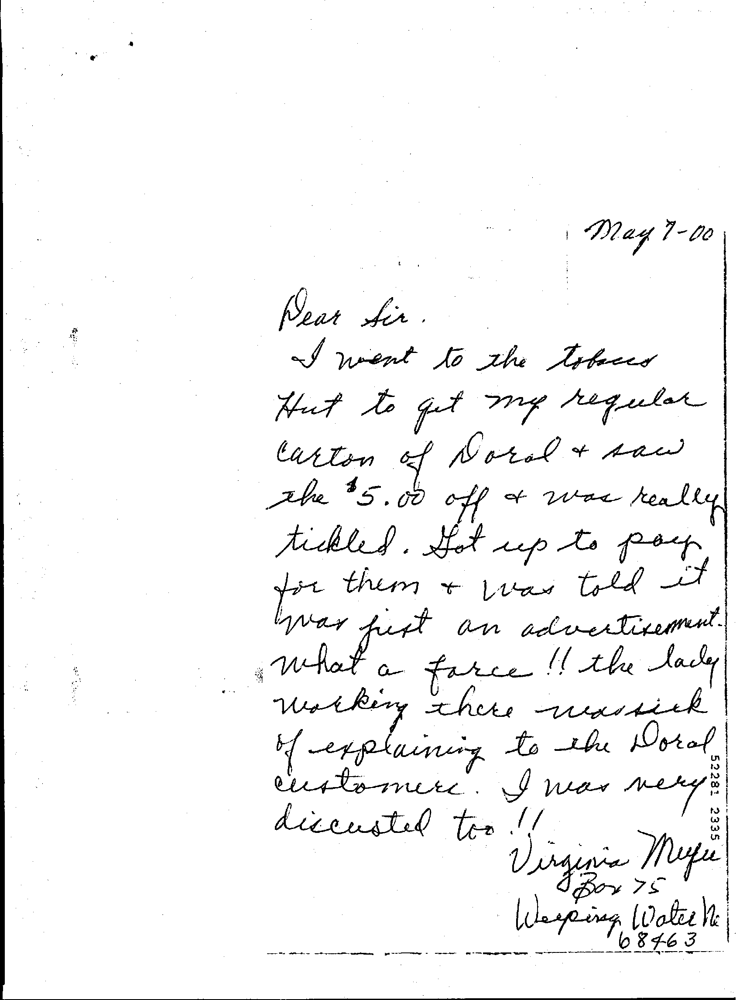 May 7-00
Dear Sir.
I went to the tobacco
Hut to get my regular
carton of Doral + saw
the $5.00 off + was really
tickled. Got up to pay
for them + was told it
was just an advertisement.
what a farce!! the lady
working there was sick
of explaining to the Doral
customers. I was very
discusted too!!
Virginia
Box 75
Weeping Water Ne
68463
52281 2335